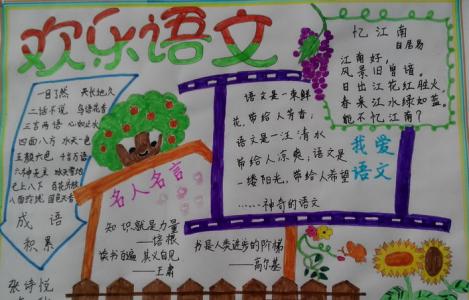 欢乐语文
一目了然 天长地久
二话不说 鸟语花香
三言两语
四面八方
七上八下 百花齐放
成语
积累
张诗悦
名人名言
知识就是力量
——培根
读书百遍 其义自见
——王肃
书是人类进步的阶梯
——高尔基
语文是一束鲜
花,带给人芳香,
语文是一汪清水
带给人凉爽,语文是
一缕阳光,带给人希望
……神奇的语文
忆江南
白居易
江南好,
风景旧曾谙。
日出江花红胜火
春来江水绿如蓝,
能不忆江南?
我爱
语文